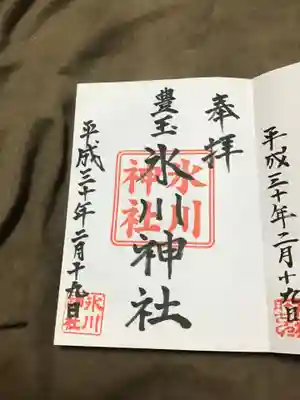 奉拝
豊玉
氷川神社
氷川
神社
平成三十年二月十九日
氷川
神社
平成三十年二月十九日